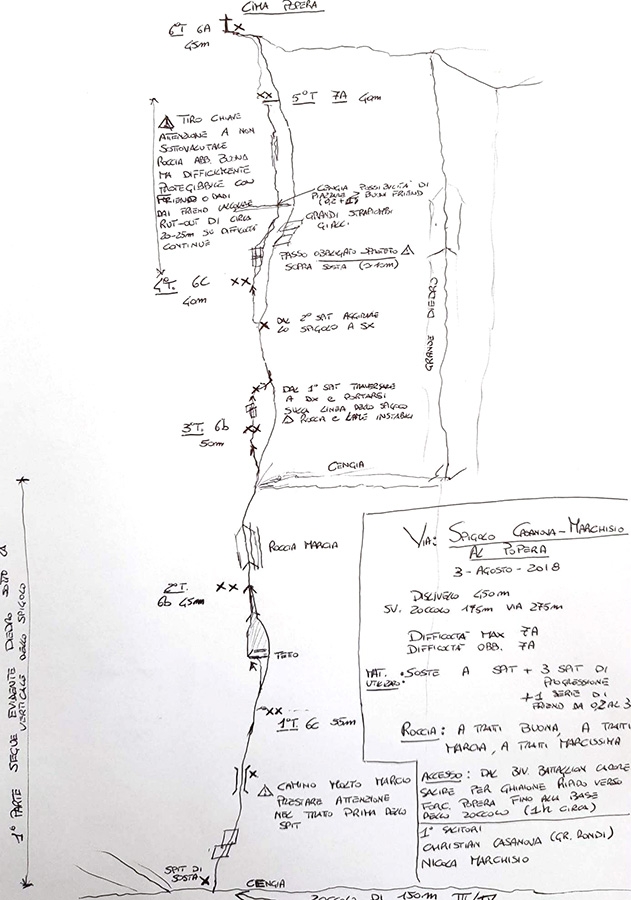 CIMA POPERA
6°T 6A
45m
5°T 7A 40m
TIRO CHIAVE
ATTENZIONE A NON
SOTTOVALUTALE
ROCCIA ABB. BUONA
MA DIFFICILMENTE
PROTEGGIBILE CON
FRIEND O DADI
DAI FRIEND
RUT-OUT DI CIRCA
20-25m SU DIFFICOLTÀ
CONTINUE
CENGIA POSSIBILITÀ DI
PIAZZARE 2 BUONI FRIEND
GRANDI STRAPIOMBI
GIALLI
PASSO OBBLIGATO
SOPRA SOSTA
4°T. 6C
40m
DAL 2° SPIT AGGIRARE
LO SPIGOLO A SX
GRANDE DIEDRO
DAL 1° SPIT TRAVERSARE
A DX E PORTARSI
SULLA LINEA DELLO SPIGOLO
ROCCIA E LAME INSTABILI
3°T. 6b
50m
CENGIA
ROCCIA MARCIA
2°T.
6b 45m
TETTO
1°T 6C 55m
CAMINO MOLTO MARCIO
PRESTARE ATTENZIONE
NEL TRATTO PRIMA DELLO
SPIT
SPIT DI
SOSTA
CENGIA
ZOCCOLO DI 150m III/IV
1° PARTE SEGUE EVIDENTE DIEDRO SOTTO LA
VERTICALE DELLO SPIGOLO
VIA: SPIGOLO CASANOVA-MARCHISIO
AL POPERA
3-AGOSTO-2018
DISLIVELLO 450m
SV. ZOCCOLO 175m VIA 275m
DIFFICOLTÀ MAX 7A
DIFFICOLTÀ OBB. 7A
MAT. UTILIZZO: SOSTE A SPIT + 3 SPIT DI
PROGRESSIONE
+ 1 SERIE DI
FRIEND DA 0,2 AL 3
ROCCIA: A TRATTI BUONA, A TRATTI
MARCIA, A TRATTI MARCISSIMA
ACCESSO: DAL BIV. BATTAGLION CADORE
SALIRE PER GHIAIONE RIPIDO VERSO
FORC. POPERA FINO ALLA BASE
DELLO ZOCCOLO (1h CIRCA)
1° SALITORI
CHRISTIAN CASANOVA (GR. RONDI)
NICOLA MARCHISIO